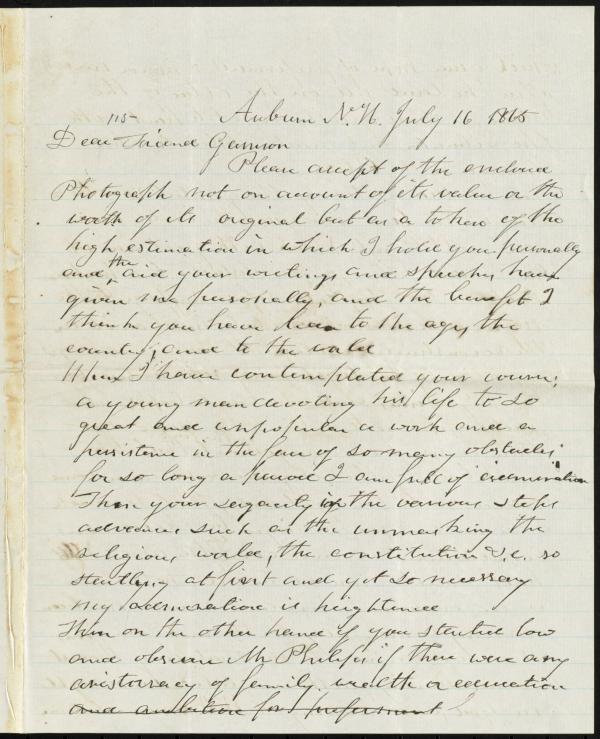 Auburn N. H. July 16 1865
115
Dear Friend Garrison
Please accept of the enclosed
Photograph not on account of its value or the
worth of its original but as a token of the
high estimation in which I hold you personally
and the aid your writings and speeches have
given me personally, and the benefit I
think you have been to the age, the
country, and to the world
When I have contemplated your course;
a young man devoting his life to so
great and unpopular a work and a
persistence in the face of so many obstacles
for so long a period I am full of admiration
Then your sagacity in the various steps
advance such as the unmasking the
religious world, the constitution &c. so
startling at first and yet so necessary
my admiration is heightened
Then on the other hand if you started low
and obscure Mr Philips if there were any
aristocracy of family, wealth or education
and ambition for preferment